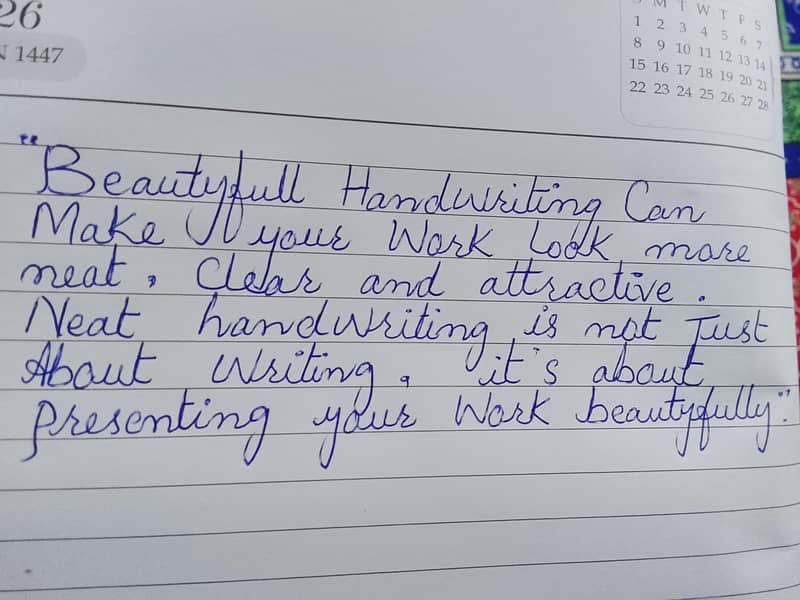 26
N 1447
S M T W T F S
1 2 3 4 5 6 7
8 9 10 11 12 13 14
15 16 17 18 19 20 21
22 23 24 25 26 27 28
"Beautyfull Handwriting Can
Make your Work look more
neat, Clear and attractive.
Neat handwriting is not Just
About Writing, it's about
presenting your Work beautyfully".